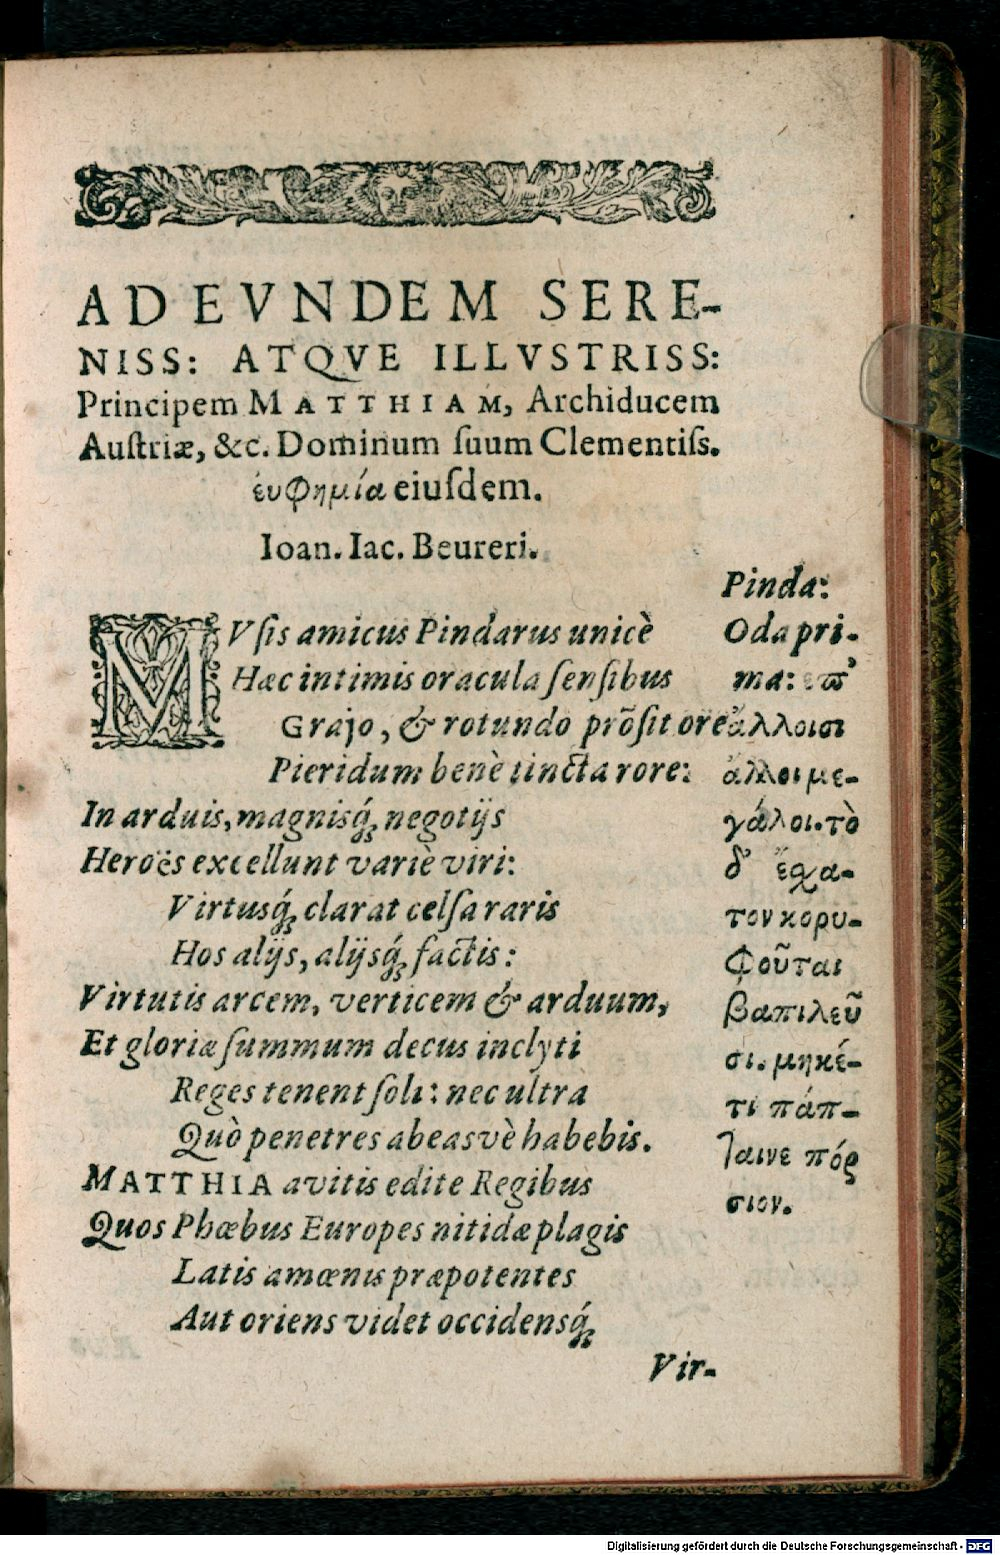 AD EVNDEM SERE-
NISS: ATQVE ILLVSTRISS:
Principem MATTHIAM, Archiducem
Auſtriæ, &c. Dominum ſuum Clementiſs.
ἐυφημία eiuſdem.
Ioan. Iac. Beureri.
MVſis amicus Pindarus unicè
Hæc intimis oracula ſenſibus
Grajo, & rotundo prõſit ore
Pieridum benè tincta rore:
In arduis, magnisq́; negotijs
Heroës excellunt variè viri:
Virtusq́; clarat celſa raris
Hos alijs, alijsq́; factis:
Virtutis arcem, verticem & arduum,
Et gloriæ ſummum decus inclyti
Reges tenent ſoli: nec ultra
Quò penetres abeasvè habebis.
MATTHIA avitis edite Regibus
Quos Phœbus Europes nitidæ plagis
Latis amœnis præpotentes
Aut oriens videt occidensq́;
Vir-
Pinda:
Oda pri-
ma: ἐπ’
ἄλλοισι
ἄλλοι με-
γάλοι. τὸ
δ’ ἔχα-
τον κορυ-
φοῦται
βαπιλεῦ
σι. μηκέ-
τι πάπ-
ταινε πόρ
σιον.
Digitalisierung gefördert durch die Deutsche Forschungsgemeinschaft - DFG